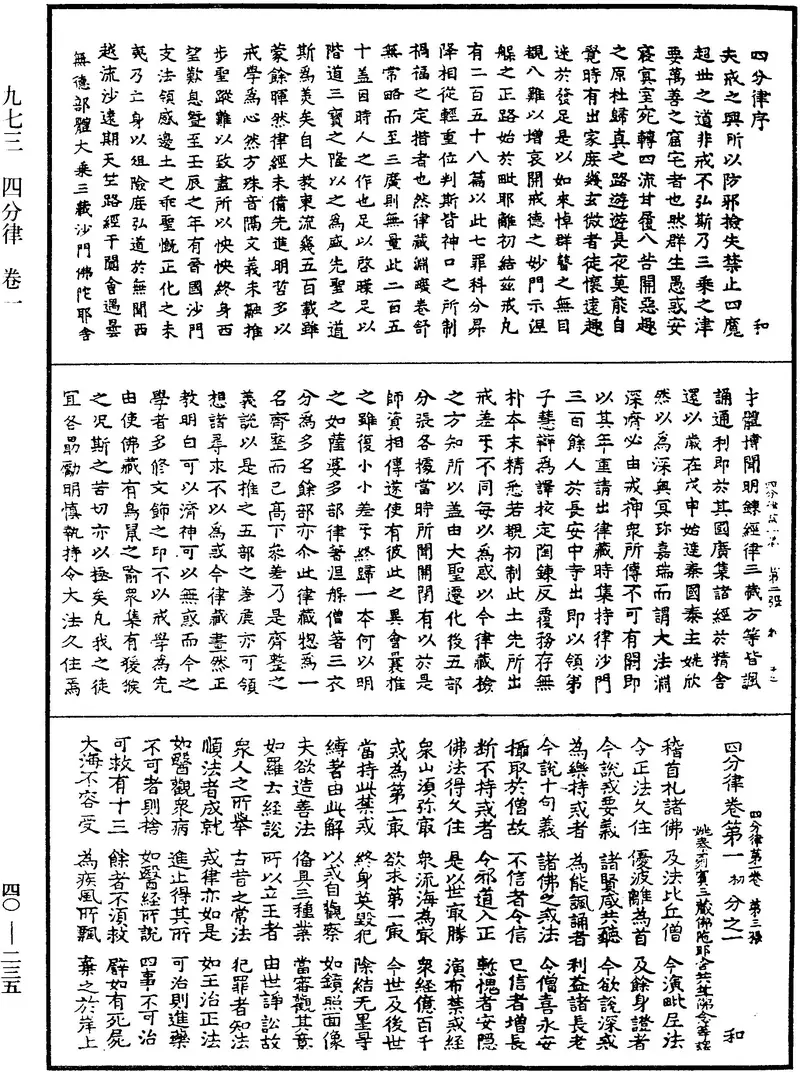 四分律序 和
夫戒之興所以防邪撿失禁止四魔
超世之道非戒不弘斯乃三乘之津
要萬善之窟宅者也然群生愚惑安
寢冥室宛轉四流甘履八苦開惡趣
之原杜歸真之路遊遊長夜莫能自
覺時有出家庶幾玄微者徒懷遠趣
迷於發足是以如來悼群瞽之無目
覩八難以增哀開戒德之妙門示涅
槃之正路始於毗耶離初結茲戒凡
有二百五十八篇以此七罪科分昇
降相從輕重位判斯皆神口之所制
禍福之定措者也然律藏淵曠卷舒
無常略而至三廣則無量此二百五
十盖因時人之作也足以啓曚足以
階道三寶之隆以之為盛先聖之道
斯為美矣自大教東流幾五百載雖
蒙餘暉然律經未備先進明哲多以
戒學為心然方殊音隔文義未融推
步聖蹤難以致盡所以怏怏終身西
望歎息暨至壬辰之年有晉國沙門
支法領感邊土之乖聖慨正化之未
夷乃亡身以俎險庶弘道於無聞西
越流沙遠期天竺路經于闐會遇曇
無德部體大乘三藏沙門佛陀耶舍
才體博聞明鍊經律三藏方等皆諷
四分律第一卷 第二張
誦通利即於其國廣集諸經於精舍
還以歲在戊申始達秦國秦主姚欣
然以為深奧冥珎嘉瑞而謂大法淵
深濟必由戒神眾所傳不可有闕即
以其年重請出律藏時集持律沙門
三百餘人於長安中寺出即以領弟
子慧辯為譯校定陶鍊反覆務存無
朴本末精悉若覩初制此土先所出
戒差互不同每以為惑以今律藏撿
之方知所以盖由大聖遷化後五部
分張各據當時所聞開閉有以於是
師資相傳遂使有彼此之異會襄推
之雖復小小差互終歸一本何以明
之如薩婆多部律著涅槃僧著三衣
分為多名餘部亦尒此律藏惣為一
名齊整而已高下叅差乃是齊整之
義說以是推之五部之差廣亦可領
想諸尋求不以為惑今律藏畫然正
教明白可以濟神可以無惑而今之
學者多修文飾之印不以戒學為先
由使佛藏有鳥鼠之喻眾集有猨猴
之況斯之苦切亦以極矣凡我之徒
宜各勗勵明慎執持令大法久住焉
四分律第一卷 第三張
四分律卷第一 初分之一 和
姚秦罽賓三藏佛陀耶舍共竺佛念等譯
稽首礼諸佛 及法比丘僧 今演毗尼法
令正法久住 優波離為首 及餘身證者
今說戒要義 諸賢咸共聽 今欲說深戒
為樂持戒者 為能諷誦者 利益諸長老
今說十句義 諸佛之戒法 令僧喜永安
攝取於僧故 不信者令信 已信者增長
斷不持戒者 令邪道入正 慙愧者安隱
佛法得久住 是以世㝡勝 演布禁戒經
眾山須弥㝡 眾流海為㝡 眾經億百千
戒為第一㝡 欲求第一㝡 今世及後世
當持此禁戒 終身莫毀犯 除結无罣㝵
縛著由此解 以戒自觀察 如鏡照面像
夫欲造善法 俻具三種業 當審觀其意
如羅云經說 所以立王者 由世諍訟故
眾人之所舉 古昔之常法 犯罪者知法
順法者成就 戒律亦如是 如王治正法
如醫觀眾病 進止得其所 可治則進藥
不可者則捨 如醫經所說 四事不可治
可救有十三 餘者不須救 譬如有死屍
大海不容受 為疾風所飄 棄之於岸上
九七三 四分律 卷一
四〇—二三五